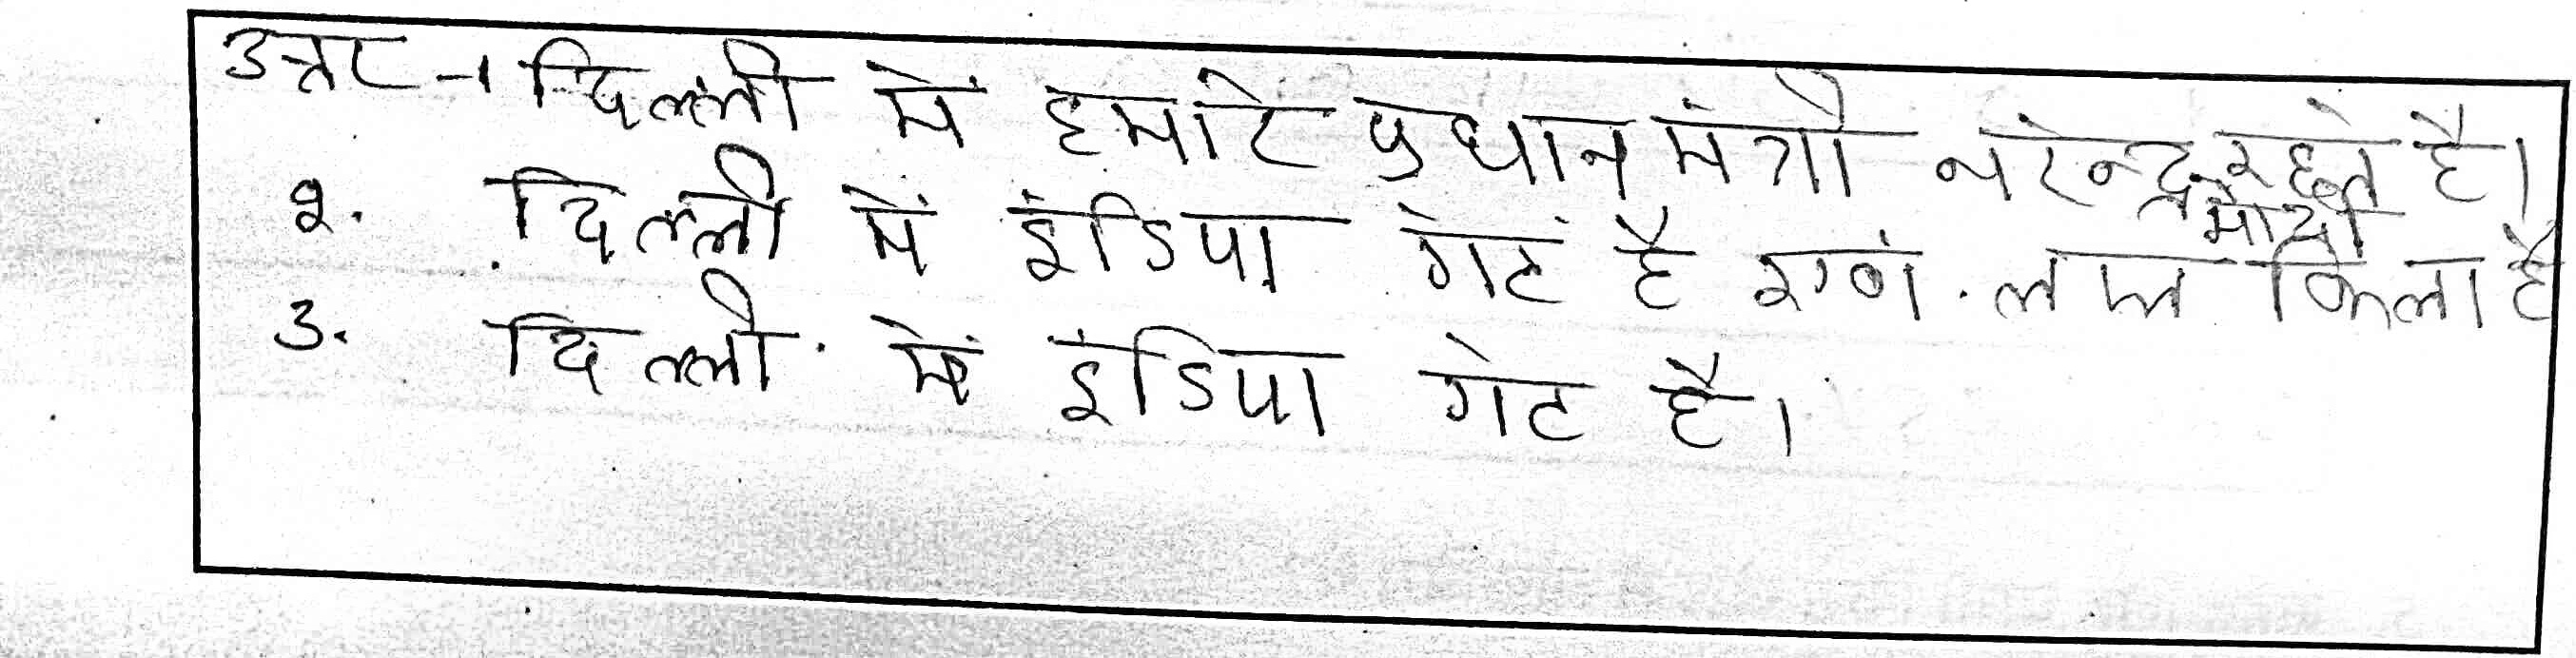 उत्तर -1 दिल्ली में हमारे प्रधान मंत्री नरेन्द्र मोदी रहते है।
२. दिल्ली में इंडिया गेट है एवं लाल किला है
3. दिल्ली में इंडिया गेट है।